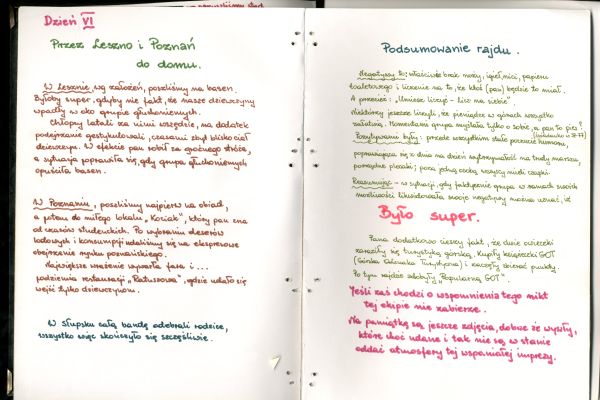 Dzień VI
Przez Leszno i Poznań
do domu.
W Lesznie, wg założeń, poszliśmy na basen.
Byłoby super, gdyby nie fakt, że nasze dziewczyny
wpadły w oko grupie głuchoniemych.
Chłopcy latali za nimi wszędzie, na dodatek
podejrzanie gestykulowali, czasami zbyt blisko ciał
dziewczyn. W efekcie pan robił za groźnego stróża,
a sytuacja poprawiła się, gdy grupa głuchoniemych
opuściła basen.
W Poznaniu, poszliśmy najpierw na obiad,
a potem do miłego lokalu „Kociak", który pan zna
od czasów studenckich. Po wybraniu deserów
lodowych i konsumpcji udaliśmy się na ekspresowe
obejrzenie rynku poznańskiego.
Największe wrażenie wywarła fara i ...
podziemia restauracji „Ratuszowa", gdzie udało się
wejść tylko dziewczynom.
W Słupsku całą bandę odebrali rodzice,
wszystko więc skończyło się szczęśliwie.
Podsumowanie rajdu.
Negatywy to: właściwie brak noży, igieł, nici, papieru
toaletowego i liczenie na to, że ktoś (pan) będzie to miał.
A przecież: „Umiesz liczyć - licz na siebie".
Niektórzy jeszcze liczyli, że pieniądze w górach wszystko
załatwią. Momentami grupa myślała tylko o sobie, a pan to pies?
Pozytywami były: przede wszystkim stałe poczucie humoru,
poprawiająca się z dnia na dzień wytrzymałość na trudy marszu,
porządne plecaki; poza jedną osobą wszyscy mieli czapki.
Reasumując - w sytuacji, gdy faktycznie grupa w ramach swoich
możliwości likwidowała swoje negatywy można uznać, iż
Było super.
Pana dodatkowo cieszy fakt, że dwie owieczki
zaraziły się turystyką górską. Kupiły książeczki GOT
(Górska Odznaka Turystyczna) i zaczęły zbierać punkty.
Po tym rajdzie zdobyły „Popularną GOT".
Jeśli zaś chodzi o wspomnienia tego nikt
tej ekipie nie zabierze.
Na pamiątkę są jeszcze zdjęcia, dobrze że wyszły,
które choć udane i tak nie są w stanie
oddać atmosfery tej wspaniałej imprezy.